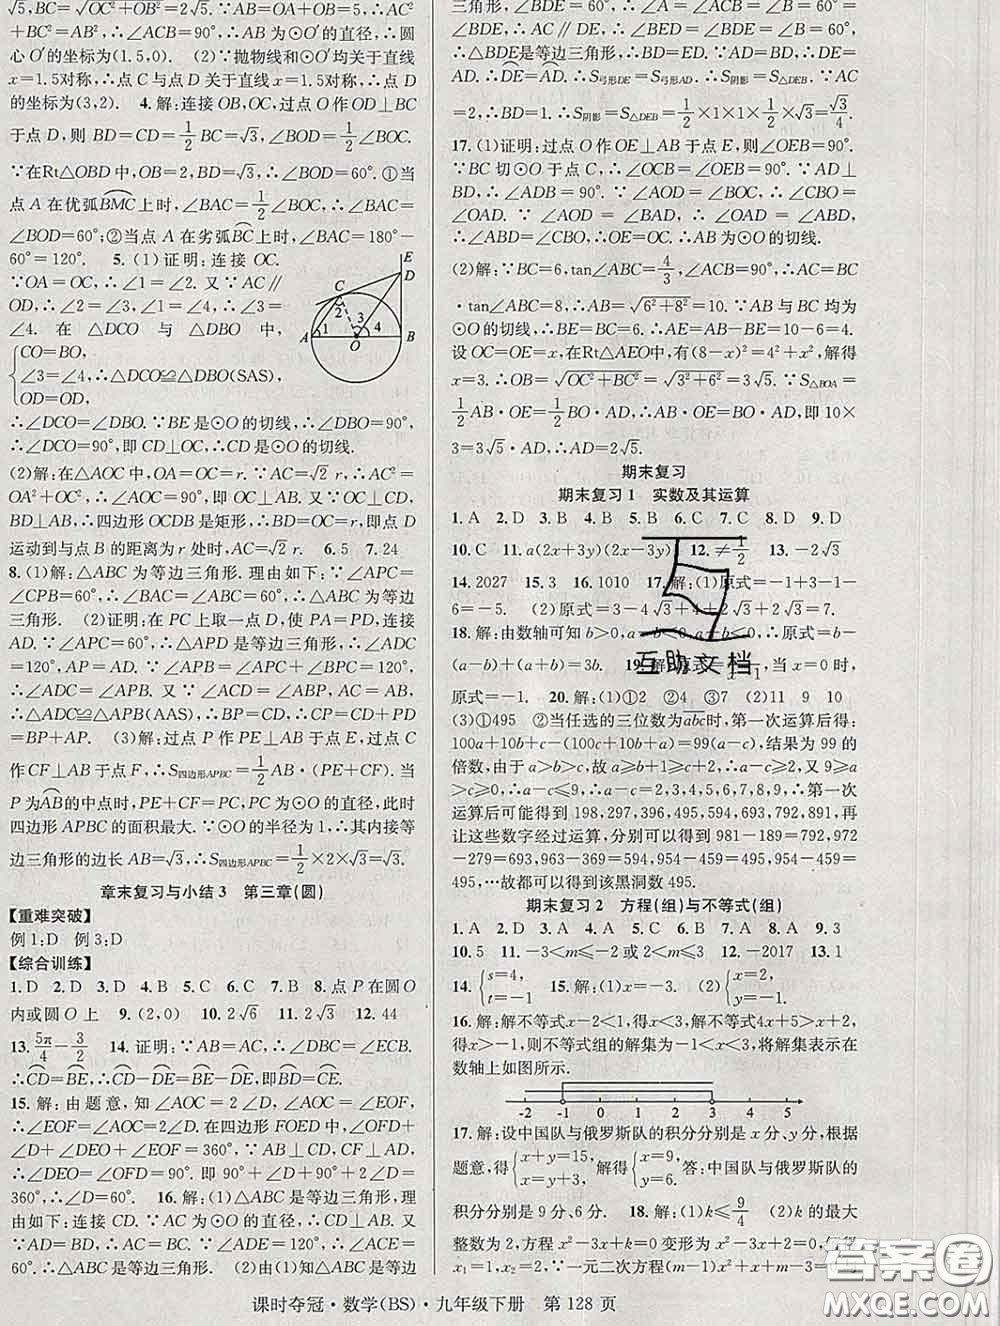 5,BC=√(OC²+OB²)=2√5. ∵AB=√5,AC=5,∴AB²+
BC²=AC²=AB²,∴∠ACB=90°,∴BC为⊙O'的直径,∴圆
心O'的坐标为(1.5,0). (2)∵抛物线和⊙O'均关于直线
x=1.5对称,∴点C与点D关于直线x=1.5对称,∴点D
的坐标为(3,2). 4.解:连接OB,OC,过点O作OD⊥BC
于点D,则BD=CD=1/2BC=√3,∠BOD=1/2∠BOC.
∵在Rt△OBD中,OB=2,BD=√3,∴∠BOD=60°.①当
点A在优弧BMC上时,∠BAC=1/2∠BOC,∴∠BAC=
∠BOD=60°;②当点A在劣弧BC上时,∠BAC=180°-
60°=120°. 5.(1)证明:连接OC.
∵OA=OC,∴∠1=∠2.又∵AC∥
OD,∴∠2=∠3,∠1=∠4,∴∠3=
∠4.在△DCO与△DBO中,
{CO=BO,
∠3=∠4,∴△DCO≌△DBO(SAS),
OD=OD,
∴∠DCO=∠DBO.∵BE是⊙O的切线,
∴∠DCO=∠DBO=90°,即CD⊥OC,∴CD是⊙O的切线.
(2)解:在△AOC中,OA=OC=r.∵AC=√2 r,∴OA²+
OC²=AC²,∴∠AOC=90°,∴OC⊥AB.∵CD⊥OC,
BD⊥AB,∴四边形OCDB是矩形,∴BD=OC=r,即点D
运动到与点B的距离为r处时,AC=√2 r. 6.5 7.24
8.(1)解:△ABC为等边三角形.理由如下:∵∠APC=
∠CPB=60°,∴∠BAC=∠ABC=60°,∴△ABC为等边
三角形. (2)证明:在PC上取一点D,使PA=PD,连接
AD.∵∠APC=60°,∴△PAD是等边三角形,∴∠ADC=
120°,AP=AD.∵∠APB=∠APC+∠BPC=120°,
∴∠APB=∠ADC.又∵AC=AB,∠ACP=∠ABP,
∴△ADC≌△APB(AAS),∴BP=CD,∴CP=CD+PD
=BP+AP. (3)解:过点P作PE⊥AB于点E,过点C
作CF⊥AB于点F,∴S四边形APBC=1/2AB·(PE+CF).当
P为AB的中点时,PE+CF=PC,PC为⊙O的直径,此时
四边形APBC的面积最大.∵⊙O的半径为1,∴其内接等
边三角形的边长AB=√3,∴S四边形APBC=1/2×2×√3=√3.
章末复习与小结3 第三章(圆)
【重难突破】
例1:D 例3:D
【综合训练】
1.D 2.D 3.D 4.B 5.C 6.B 7.B 8.点P在圆O
内或圆O上 9.(2,0) 10.2√6 11.2√3 12.44
13.5π/4-3/2 14.证明:∵AB=AC,∴∠DBC=∠ECB.
∴CD=BE,∴CD-DE=BE-DE,即BD=CE.
15.解:由题意,知∠AOC=2∠D,∠AOC=∠EOF,
∴∠EOF=∠AOC=2∠D.在四边形FOED中,∠OFD+
∠D+∠DEO+∠EOF=360°,∴90°+∠D+90°+2∠D=
360°,∴∠D=60°. 16.解:(1)△ABC是等边三角形,理
由如下:连接CD.∵AC为⊙O的直径,∴CD⊥AB.又
∵AD=BD,∴AC=BC.∵∠ADE=120°,∴∠ACE=
60°,∴△ABC是等边三角形. (2)由(1)知△ABC是等边
三角形,∠BDE=60°,∴∠BDE=∠BED=60°,
∴△BDE是等边三角形,∴BD=BE=DE,∴AD=DE,
∴DE=AD.∴S弓形DE=S弓形AD,∴S阴影=S△DEB.∵AC
=2,∴BD=1.∴S阴影=S△DEB=1/2×1×1×√3/2=√3/4.
17.(1)证明:过点O作OE⊥AB于点E,则∠OEB=90°.
∵BC切⊙O于点C,∴∠OCB=∠OEB=90°.∵AD⊥
BD,∴∠D=90°.∵∠AOD=∠BOC,∴∠CBO=
∠OAD.∵∠OAD=∠ABO,∴∠ABO=∠CBO,∴OE=
OC,∴AB为⊙O的切线.
(2)解:∵BC=6,tan∠ABC=4/3,∠ACB=90°,∴AC=BC
·tan∠ABC=8,∴AB=√(6²+8²)=10.∵AB与BC均为
⊙O的切线,∴BE=BC=6.∴AE=AB-BE=10-6=4.
设OC=OE=x,在Rt△AEO中,有(8-x)²=4²+x²,解得
x=3.∴OB=√(OC²+BC²)=√(3²+6²)=3√5.∵S△BOA=
1/2AB·OE=1/2OB·AD,∴AB·OE=OB·AD,即10×
3=3√5·AD,∴AD=2√5.
期末复习
期末复习1 实数及其运算
1.A 2.D 3.B 4.B 5.B 6.C 7.C 8.D 9.D
10.C 11.a(2x+3y)(2x-3y) 12.≠1/2 13.-2√3
14.2027 15.3 16.1010 17.解:(1)原式=-1+3-1-
6=-5. (2)原式=3-4√3+4+2√3+2√3=7.
18.解:由数轴可知b>0,a-b<0,a+b<0,∴原式=b-
(a-b)+(a+b)=3b. 19.解:原式= x-1,当x=0时,
原式=-1. 20.解:(1)①2 ②4 ③7 (2)11 9 10
(3)①495 ②当任选的三位数为abc时,第一次运算后得:
100a+10b+c-(100c+10b+a)=99(a-c),结果为99的
倍数,由于a>b>c,故a≥b+1≥c+2,∴a-c≥2,又9≥
a>c≥0,∴a-c≤9,∴a-c=2,3,4,5,6,7,8,9,∴第一次
运算后可能得到198,297,396,495,594,693,792,891,再
让这些数字经过运算,分别可以得到981-189=792,972
-279=693,963-369=594,954-459=495,954-459=495,
…故都可以得到该黑洞数495.
期末复习2 方程(组)与不等式(组)
1.A 2.D 3.D 4.A 5.C 6.B 7.A 8.A 9.3
10.5 11.-3<m≤-2或2<m≤3 12.-2017 13.1
14.{s=4, t=-1 15.解:(1)x=-3. (2){x=2, y=-1.
16.解:解不等式x-2<1,得x<3,解不等式2x+5>3,
得x>-1,则不等式组的解集为-1<x<3,将解集表示在
数轴上如图所示.
-2 -1 0 1 2 3 4 5
17.解:设中国队与俄罗斯队的积分分别是x分、y分,根据
题意,得{x+y=15, x=y+3, 解得{x=9, y=6. 答:中国队与俄罗斯队的
积分分别是9分、6分. 18.解:(1)k≤9/4 (2)k的最大
整数为2,方程x²-3x+k=0变形为x²-3x+2=0,解得
x₁=1,x₂=2.∵一元二次方程
课时夺冠·数学(BS)·九年级下册 第128页
互助文档
答案圈
MXQE.COM